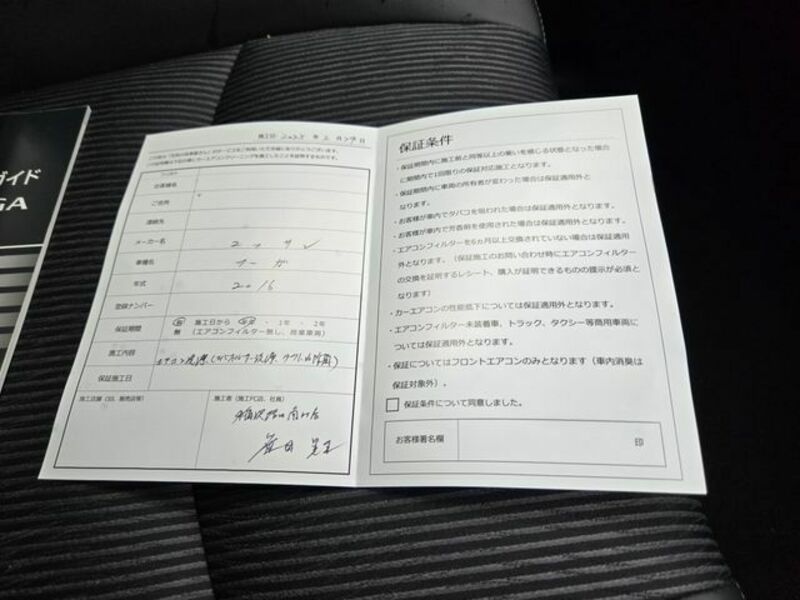 ガイド
GA
施工日 2025 年 2 月 27 日
この度は「光触の効果施しカーサービスをご利用いただき誠にありがとうございます。
お客様名
ご住所
連絡先
メーカー名 ニッサン
車種名 ノーガ
年式 2016
登録ナンバー
保証期間 有 施工日から 6ヶ月 ・ 1年 ・ 2年
無 (エアコンフィルター無し、商業車両)
施工内容 エアコン洗浄
保証施工日
施工店舗 (SS、販売店等)
施工者 (施工FC店、社員)
保証条件
・保証期間内に施工前と同等以上の臭いを感じる状態となった場合
に期間内で1回限りの保証対応施工となります。
・保証期間内に車両の所有者が変わった場合は保証適用外と
なります。
・お客様が車内でタバコを吸われた場合は保証適用外となります。
・お客様が車内で芳香剤を使用された場合は保証適用外となります。
・エアコンフィルターを6ヵ月以上交換されていない場合は保証適用
外となります。(保証施工のお問い合わせ時にエアコンフィルター
の交換を証明するレシート、購入が証明できるものの提示が必須と
なります)
・カーエアコンの性能低下については保証適用外となります。
・エアコンフィルター未装着車、トラック、タクシー等商用車両に
ついては保証適用外となります。
・保証についてはフロントエアコンのみとなります(車内消臭は
保証対象外)。
保証条件について同意しました。
お客様署名欄 印